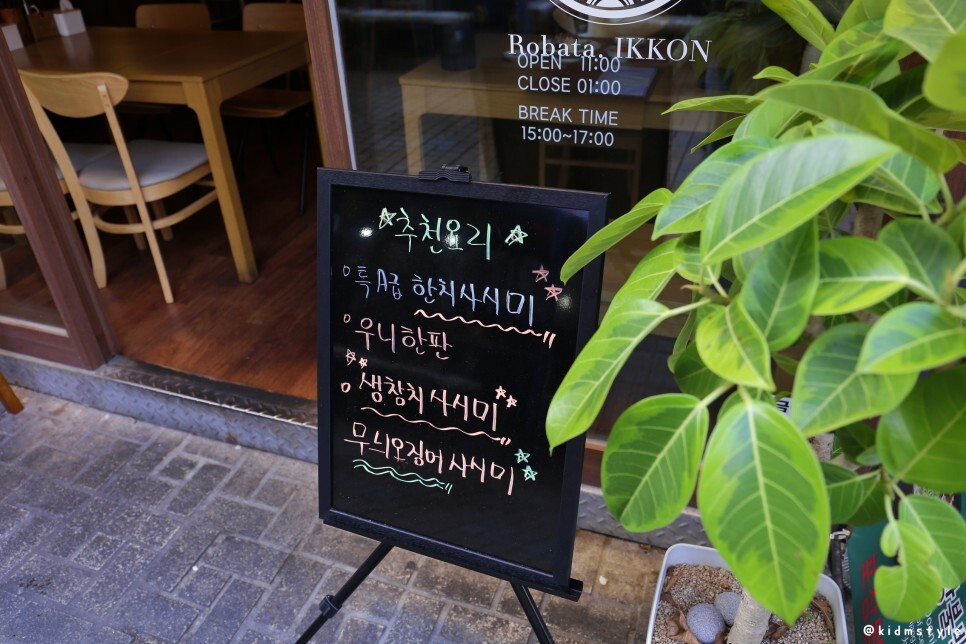 Robata. IKKON
OPEN 11:00
CLOSE 01:00
BREAK TIME
15:00~17:00
추천요리
특A급 한치사시미
우니한판
생참치 사시미
무늬오징어 사시미
@kidmstyle